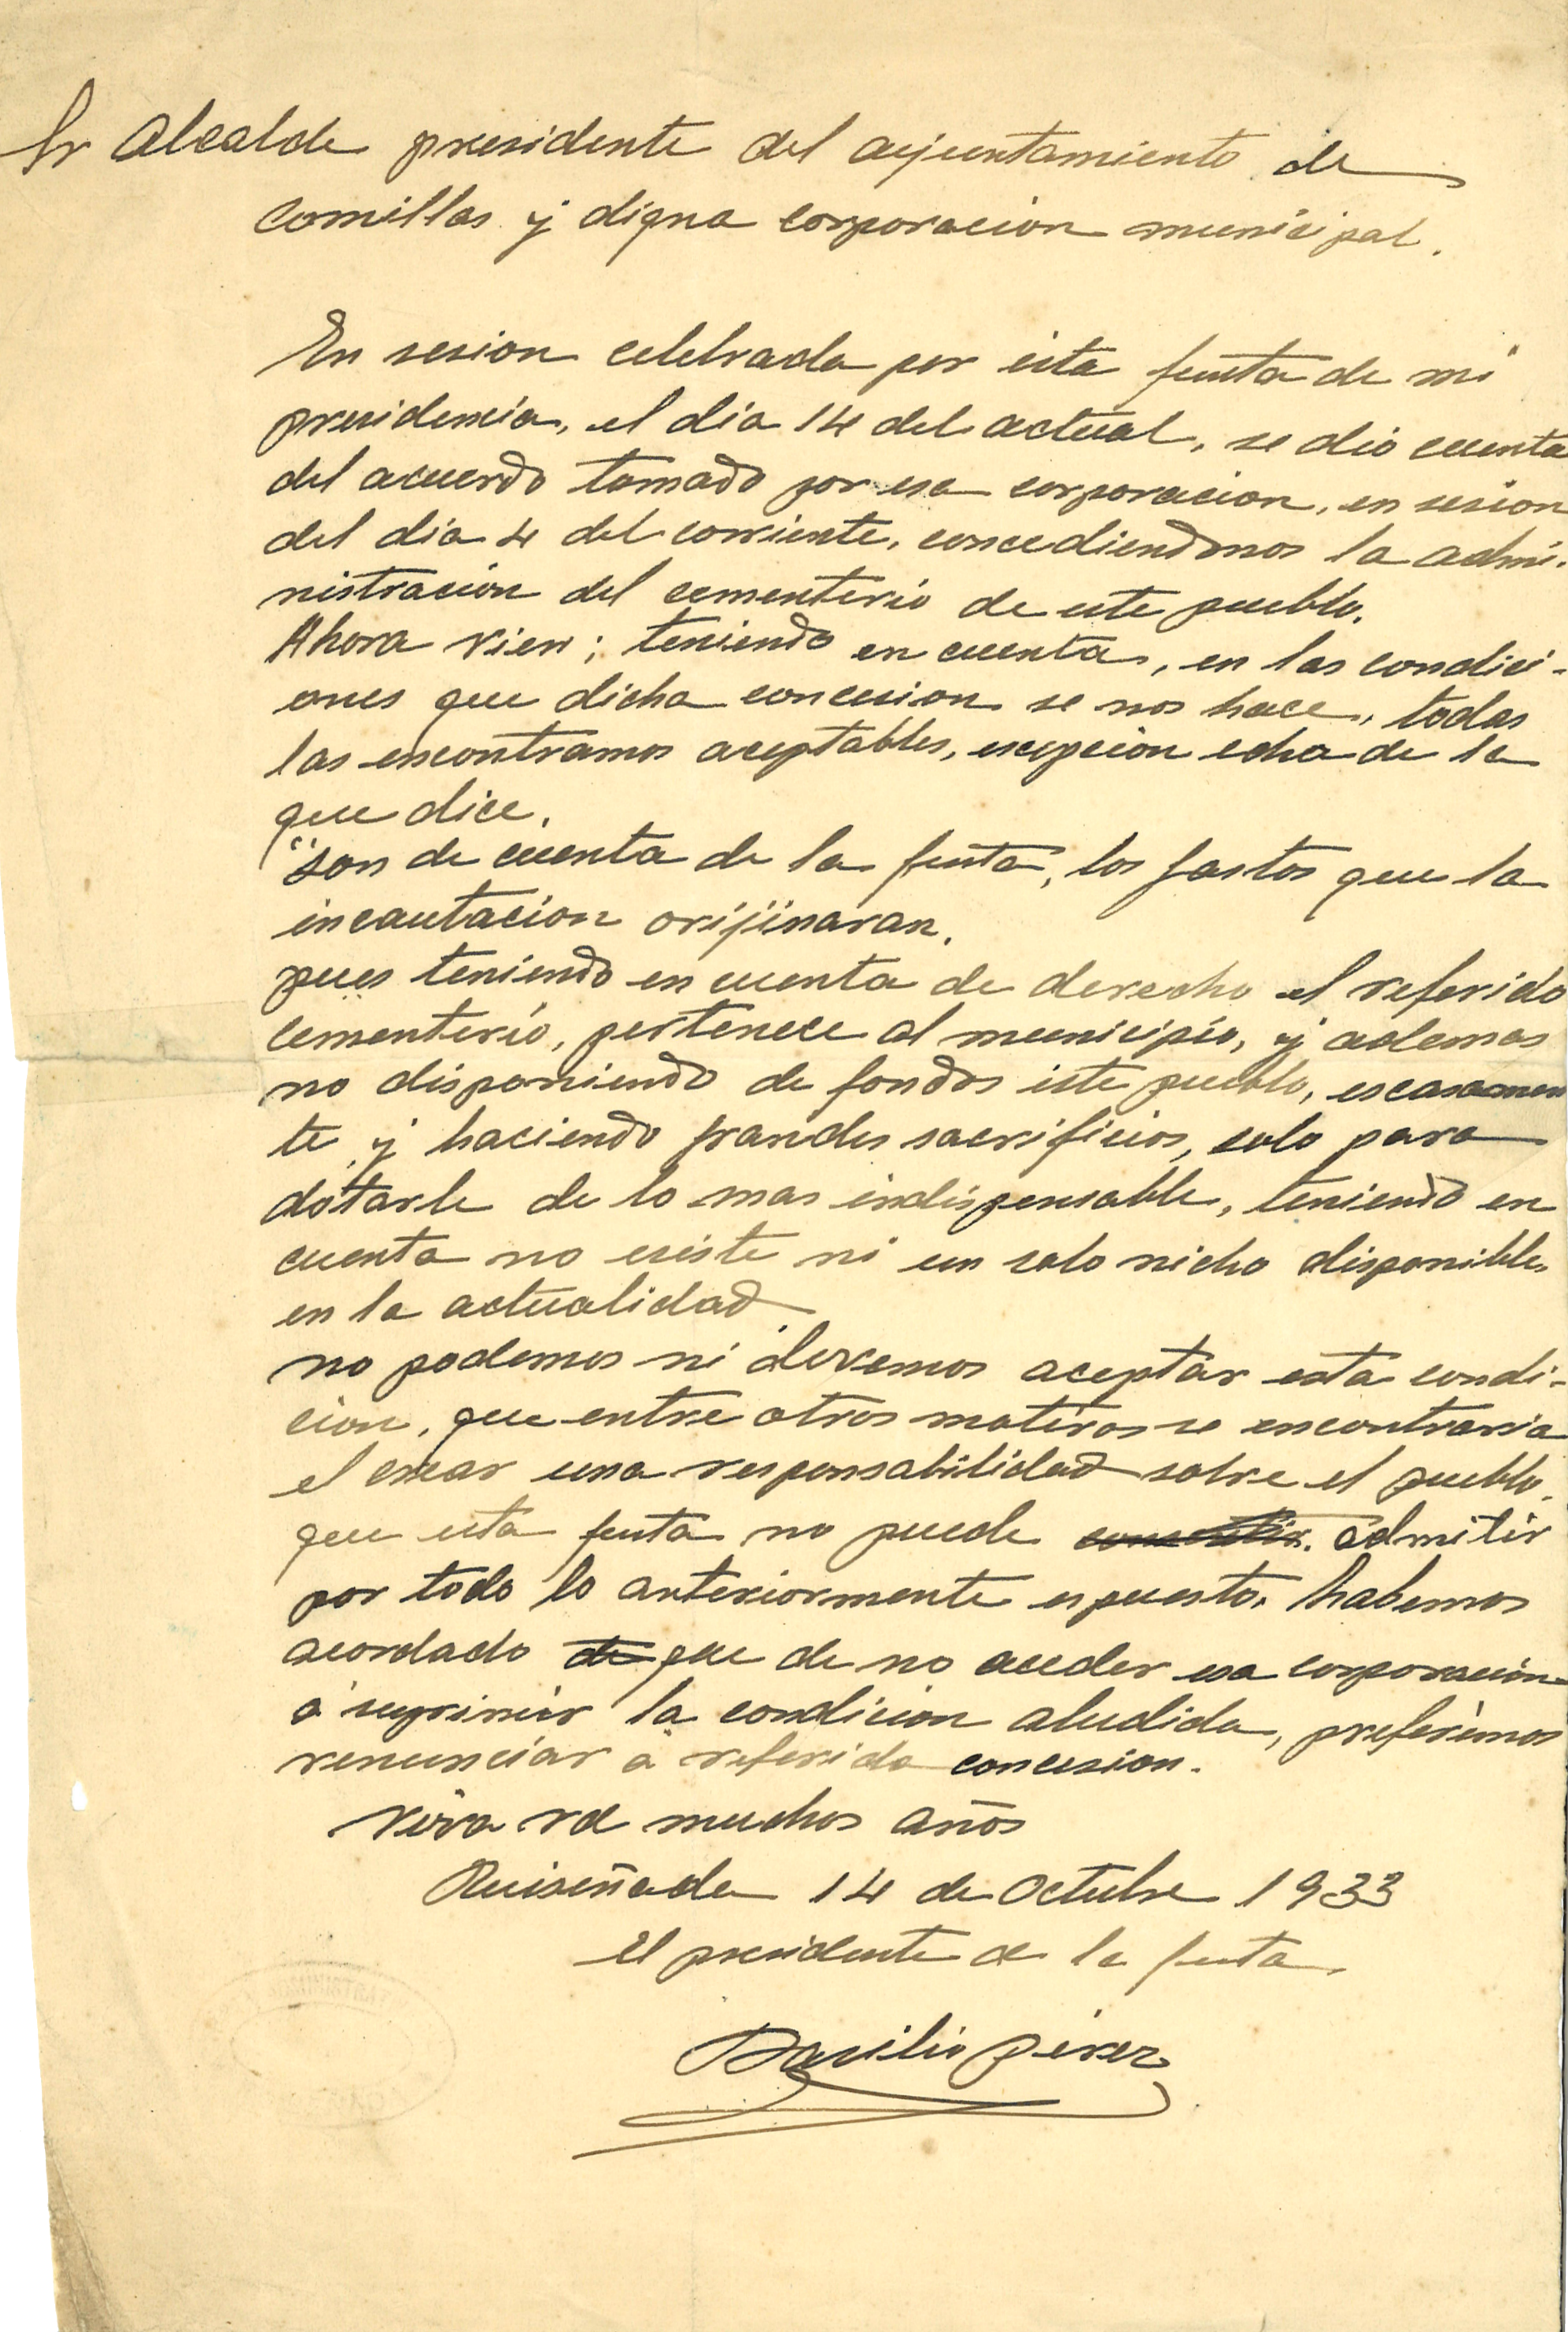 Sr Alcalde presidente del ayuntamiento de
comillas y digna corporacion municipal.
En sesion celebrada por esta junta de mi
presidencia, el dia 14 del actual, se dio cuenta
del acuerdo tomado por esa corporacion, en sesion
del dia 4 del corriente, concediendonos la admi-
nistracion del cementerio de este pueblo.
Ahora vien; teniendo en cuenta, en las condici-
ones que dicha concesion se nos hace, todas
las encontramos aceptables, escepcion echa de la
que dice.
"son de cuenta de la junta, los gastos que la
incautacion orijinaran.
pues teniendo en cuenta de derecho el referido
cementerio, pertenece al municipio, y ademas
no disponiendo de fondos este pueblo, escasamen
te y haciendo grandes sacrificios, solo para
dotarle de lo mas indispensable, teniendo en
cuenta no esiste ni un solo nicho disponible
en la actualidad.
no podemos ni devemos aceptar esta condi-
cion, que entre otros motivos se encontraria
el crear una responsabilidad sobre el pueblo.
que esta junta no puede consentir. admitir
por todo lo anteriormente espuesto. habemos
acordado de que de no acceder esa corporacion
á suprimir la condicion aludida, preferimos
renunciar á referida concesion.
viva vd muchos años
Ruiseñada 14 de Octubre 1933
el presidente de la junta
Basilio perez